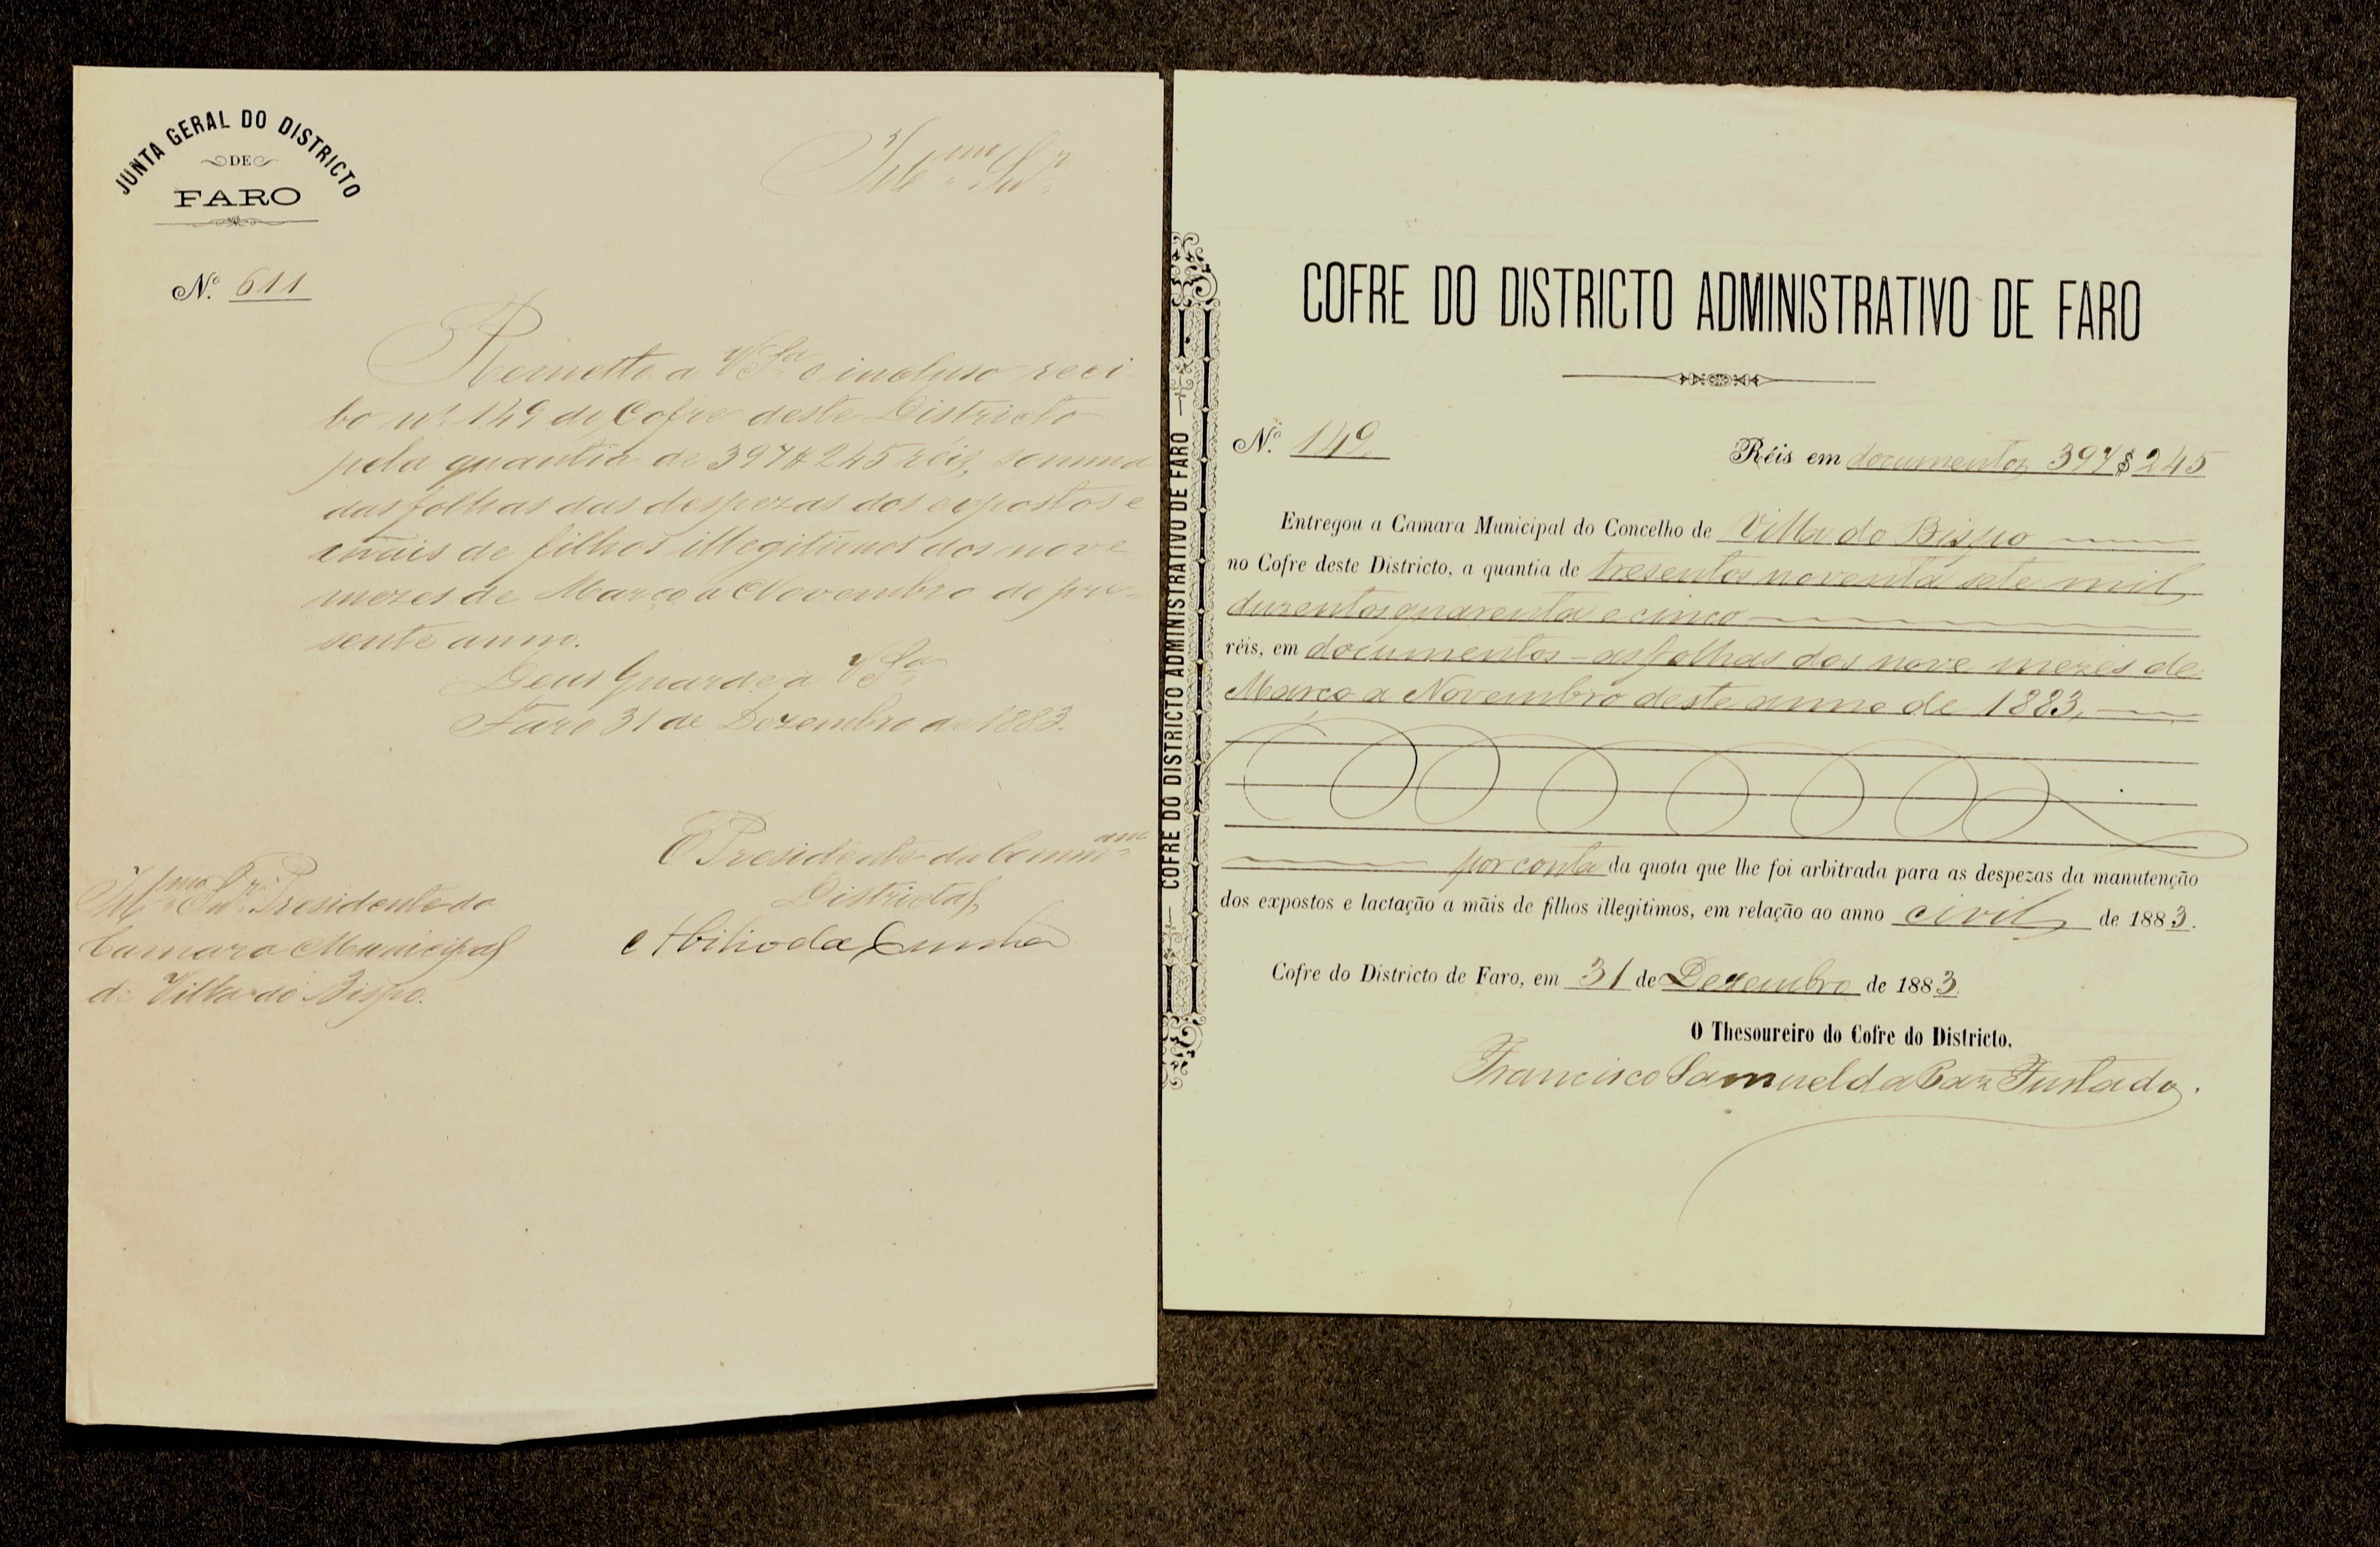 JUNTA GERAL DO DISTRICTO
DE
FARO
Nº 611
Illmo Snr
Remetto a VSa o incluso reci-
bo nº 149 do Cofre deste Districto
pela quantia de 397$245 réis, somma
das folhas das despezas dos expostos e
mais de filhos illegitimos dos nove
mezes de Março a Novembro do pre-
sente anno.
Deus Guarde a VSa
Faro 31 de Dezembro de 1883.
O Presidente da Comm
Districtal
Abilio da Cunha
Illmo Snr Presidente da
Camara Municipal
de Villa do Bispo.
COFRE DO DISTRICTO ADMINISTRATIVO DE FARO
COFRE DO DISTRICTO ADMINISTRATIVO DE FARO
Nº 149
Réis em documentos 397$245
Entregou a Camara Municipal do Concelho de Villa do Bispo
no Cofre deste Districto, a quantia de tresentos noventa sete mil
duzentos quarenta e cinco
réis, em documentos - as folhas dos nove mezes de
Março a Novembro deste anno de 1883,
por conta da quota que lhe foi arbitrada para as despezas da manutenção
dos expostos e lactação a mãis de filhos illegitimos, em relação ao anno civil de 1883.
Cofre do Districto de Faro, em 31 de Dezembro de 1883.
O Thesoureiro do Cofre do Districto,
Francisco Samuel da Paz Furtado.